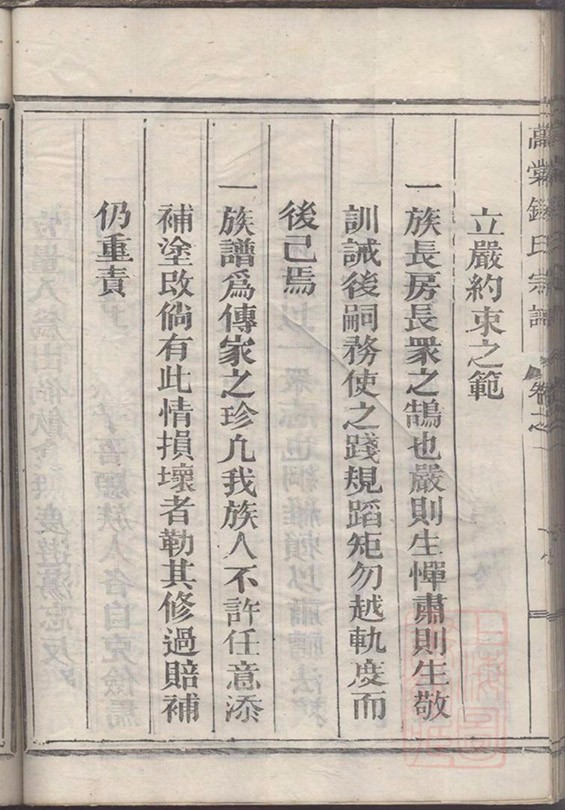 立嚴約束之範
一族長房長衆之鵠也嚴則生憚肅則生敬
訓誡後嗣務使之踐規蹈矩勿越軌度而
後己焉
一族譜爲傳家之珍凢我族人不許任意添
補塗改倘有此情損壞者勒其修過賠補
仍重責